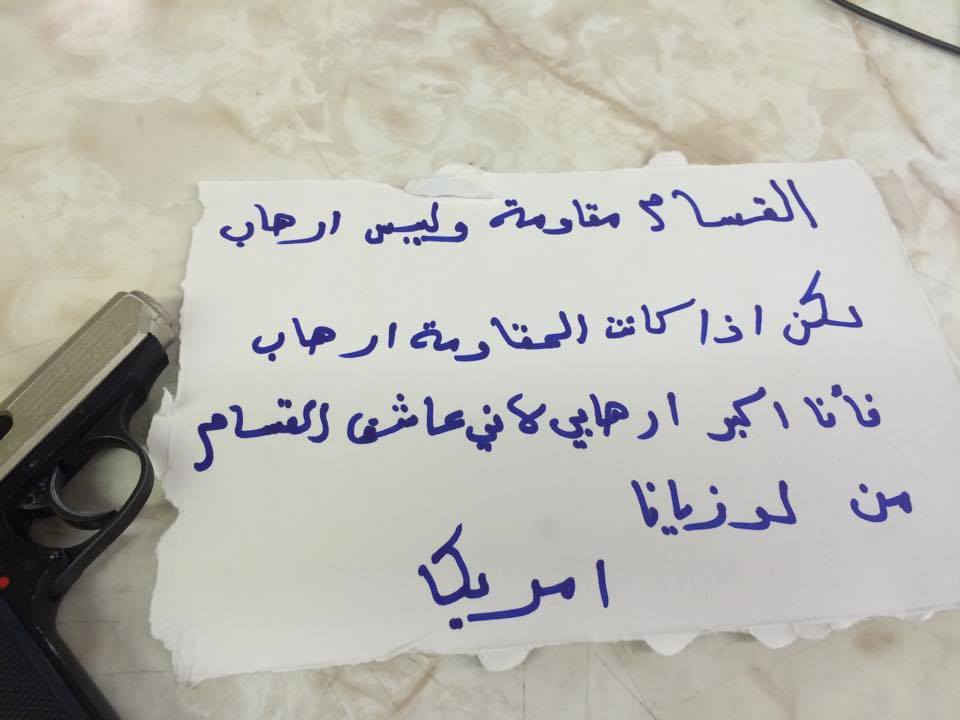 القسام مقاومة وليس ارهاب
لكن اذا كانت المقاومة ارهاب
فأنا اكبر ارهابي لاني عاشق القسام
من لوزيانا
امريكا